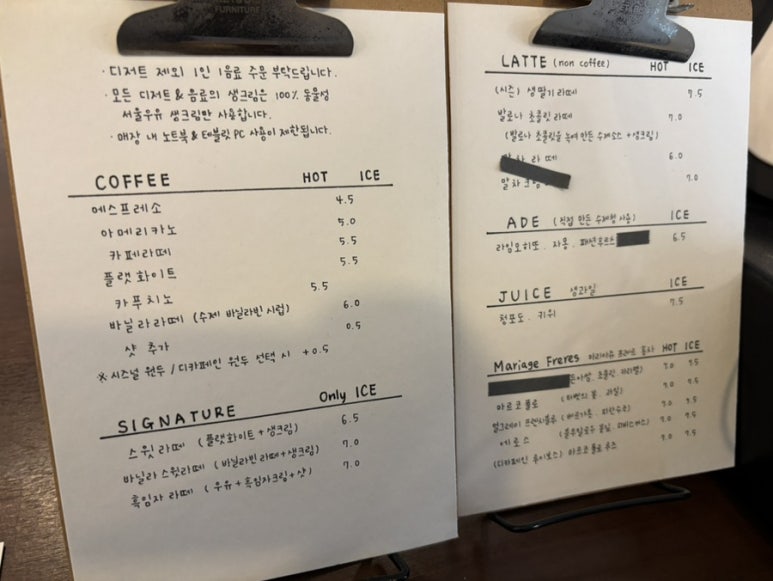 FURNITURE
· 디저트 제외 1인 1음료 주문 부탁드립니다.
· 모든 디저트 & 음료의 생크림은 100% 동물성
서울우유 생크림만 사용합니다.
· 매장 내 노트북 & 테블릿 PC 사용이 제한됩니다.
COFFEE HOT ICE
에스프레소 4.5
아메리카노 5.0
카페라떼 5.5
플랫화이트 5.5
카푸치노 5.5
바닐라라떼 (수제 바닐라빈 시럽) 6.0
샷 추가 0.5
※ 시즈널 원두 / 디카페인 원두 선택 시 +0.5
SIGNATURE Only ICE
스윗라떼 (플랫화이트+생크림) 6.5
바닐라 스윗라떼 (바닐라빈 라떼+생크림) 7.0
흑임자 라떼 (우유+흑임자크림+샷) 7.0
LATTE (non coffee) HOT ICE
(시즌) 생딸기 라떼 7.5
발로나 초콜릿 라떼 7.0
(발로나 초콜릿을 녹여 만든 수제소스+생크림)
라떼 6.0
말차 7.0
ADE (직접 만든 수제청 사용) ICE
라임모히또. 자몽. 패션후르츠 6.5
JUICE 생과일 ICE
청포도. 키위 7.5
Mariage Freres 마리아쥬 프레르 홍차 HOT ICE
초콜릿. 카라멜) 7.0 7.5
마르코폴로 (티벳의 꽃. 과일) 7.0 7.5
얼그레이 프렌치블루 (베르가못. ) 7.0 7.5
에로스 (. 히비스커스) 7.0 7.5
(디카페인 루이보스) 마르코 폴로 루즈 7.0 7.5